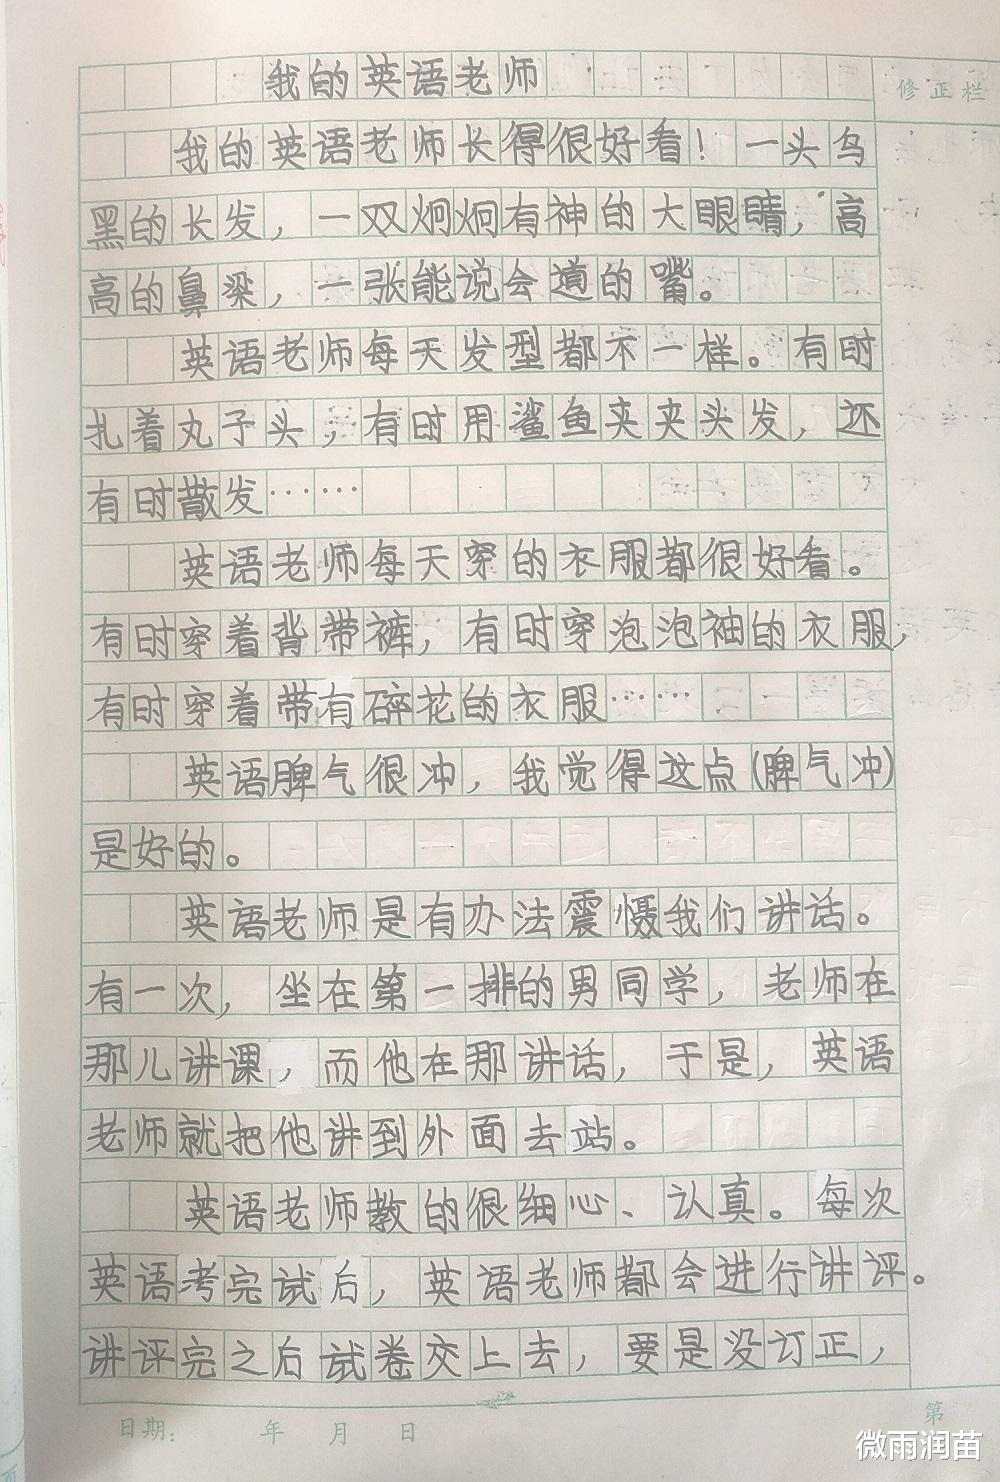 我的英语老师
修正栏
我的英语老师长得很好看！一头乌
黑的长发，一双炯炯有神的大眼睛，高
高的鼻梁，一张能说会道的嘴。
英语老师每天发型都不一样。有时
扎着丸子头，有时用鲨鱼夹夹头发，还
有时散发……
英语老师每天穿的衣服都很好看。
有时穿着背带裤，有时穿泡泡袖的衣服，
有时穿着带有碎花的衣服……
英语脾气很冲，我觉得这点(脾气冲)
是好的。
英语老师是有办法震慑我们讲话。
有一次，坐在第一排的男同学，老师在
那儿讲课，而他在那讲话，于是，英语
老师就把他讲到外面去站。
英语老师教的很细心、认真。每次
英语考完试后，英语老师都会进行讲评。
讲评完之后试卷交上去，要是没订正，
日期： 年 月 日
第
微雨润苗